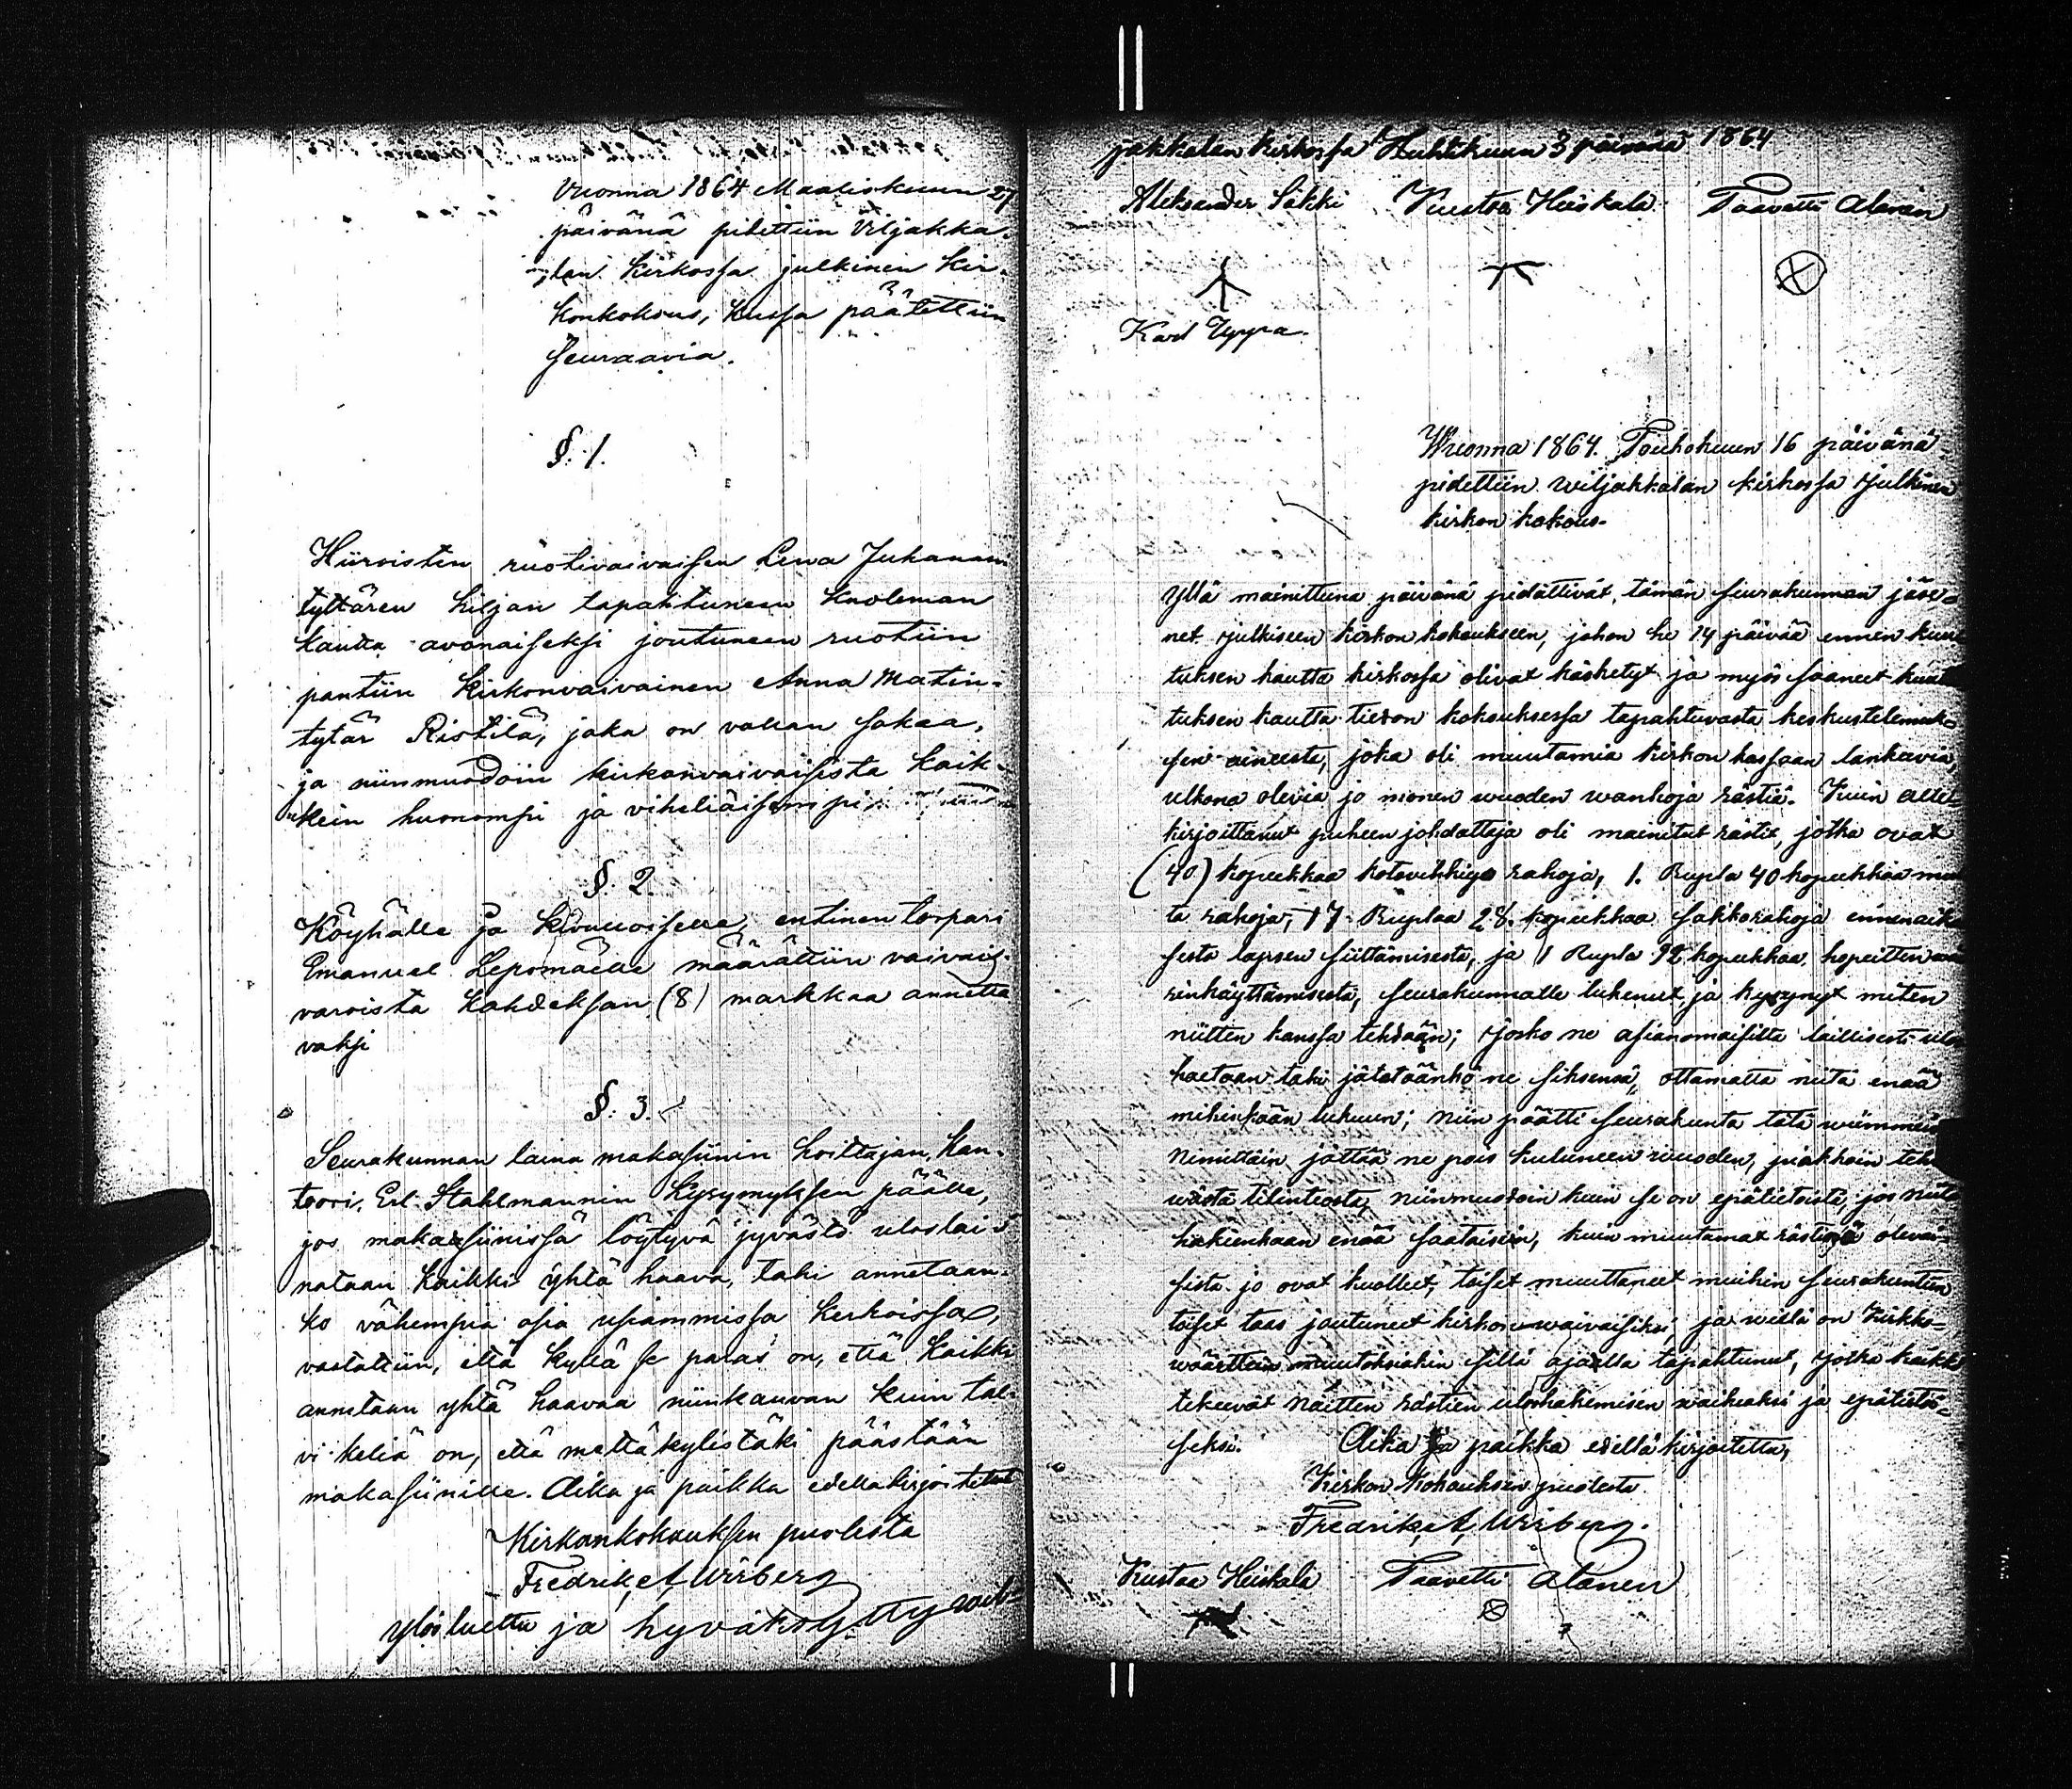 Vuonna 1864 Maaliskuun 27
päivänä pidettiin Viljakka-
lan Kirkossa julkinen Kir-
konkokous, kussa päätettiin
seuraavia.
§. 1.
Hiirvisten ruotivaivaisen Lena Juhanan
tyttären hiljan tapahtuneen Kuoleman
kautta avonaiseksi joutuneen ruotiin
pantiin Kirkonvaivainen Anna Matin-
tytär Ristilä, joka on vallan sokea,
ja niinmuodoin kirkonvaivaisista kaik-
kein huonompi ja viheliäisempi
§. 2.
Köyhälle ja kivulloiselle, entinen torpari
Emanuel Lepomäelle määrättiin vaivais-
varoista kahdeksan (8) markkaa annetta
vaksi
§. 3.
Seurakunnan laina makasiinin hoittajan, Kan-
toori, Erl. Stahlmannin Kysymyksen päälle,
jos makasiinissä löytyvä jyvästö uloslai-
nataan kaikki yhtä haava, taki annetaan-
ko vähempiä osia usiammissa kerhoissa,
vastattiin, että kyllä se paras on, että kaikki
annetaan yhtä haavaa niinkauvan kuin tal-
vi keliä on, että mettäkylistäki päästään
makasiinille. Aika ja paikka edelläkirjoitetut
Kirkonkokouksen puolesta
Fredrik A. Wirberg
ylösluettu ja hyväksytty Wil-
jakkalan kirkossa Huhtikuun 3 päivänä 1864
Aleksander Sakki Kustaa Heiskala Taavetti Alanen
Karl Uppa.
Wuonna 1864. Toukokuun 16 päivänä
pidettiin Wiljakkalan kirkossa julkinen
kirkon kokous.
Yllä mainittuna päivänä pidättivät, tämän seurakunnan jäse-
net julkiseen kirkon kokoukseen, johon he 14 päivää ennen kuulu
tuksen kautta kirkossa olivat käsketyt ja myös saaneet kuulu
tuksen kautta tiedon kokouksessa tapahtuvasta keskustelemuk-
sen aineesta, joka oli muutamia kirkon kassaan lankeavia,
ulkona olevia jo monen wuoden wanhoja rästiä. Kuin alle-
kirjoittanut puheen johdattaja oli mainitut rästit, jotka ovat
(40) kopeekkaa kotovikkiys rahoja, 1. Rupla 40 kopeekkaa muu
ta rahoja, 17 Ruplaa 28 kopeekkaa sakkorahoja ennenaika
sesta lapsen siittämisestä, ja 1 Rupla 92 kopeekkaa hopeitten wää
rinkäyttämisestä, seurakunnalle lukenut, ja kysynyt miten
niitten kanssa tehdään; josko ne asianomaisilta laillisesti ulos
haetaan taki jätetäänkö ne siksensä, ottamatta niitä enää
mihenkään lukuun; Niin päätti seurakunta tätä wiimmeistä
Nimittäin jättää ne pois kuluneen wuoden, piakkoin teh
wästä tilinteosta, niinmuodoin kuin se on epätietoista, jos niitä
hakienkaan enää saataisiin, kuin muutamat rästissä olevai-
sista jo ovat kuolleet, toiset muuttaneet muihin seurakuntiin
toiset taas joutuneet kirkon waivaisiksi, ja wielä on Kirkko-
wäärttein muutoksiakin sillä ajalla tapahtunut, jotka kaikki
tekeevät näitten rästien uloshakemisen waikeaksi ja epätietoi-
seksi. Aika ja paikka edellä kirjoitettu,
Kirkon Kokouksen puolesta
Fredrik A. Wirberg.
Kustaa Heiskala Taavetti Alanen